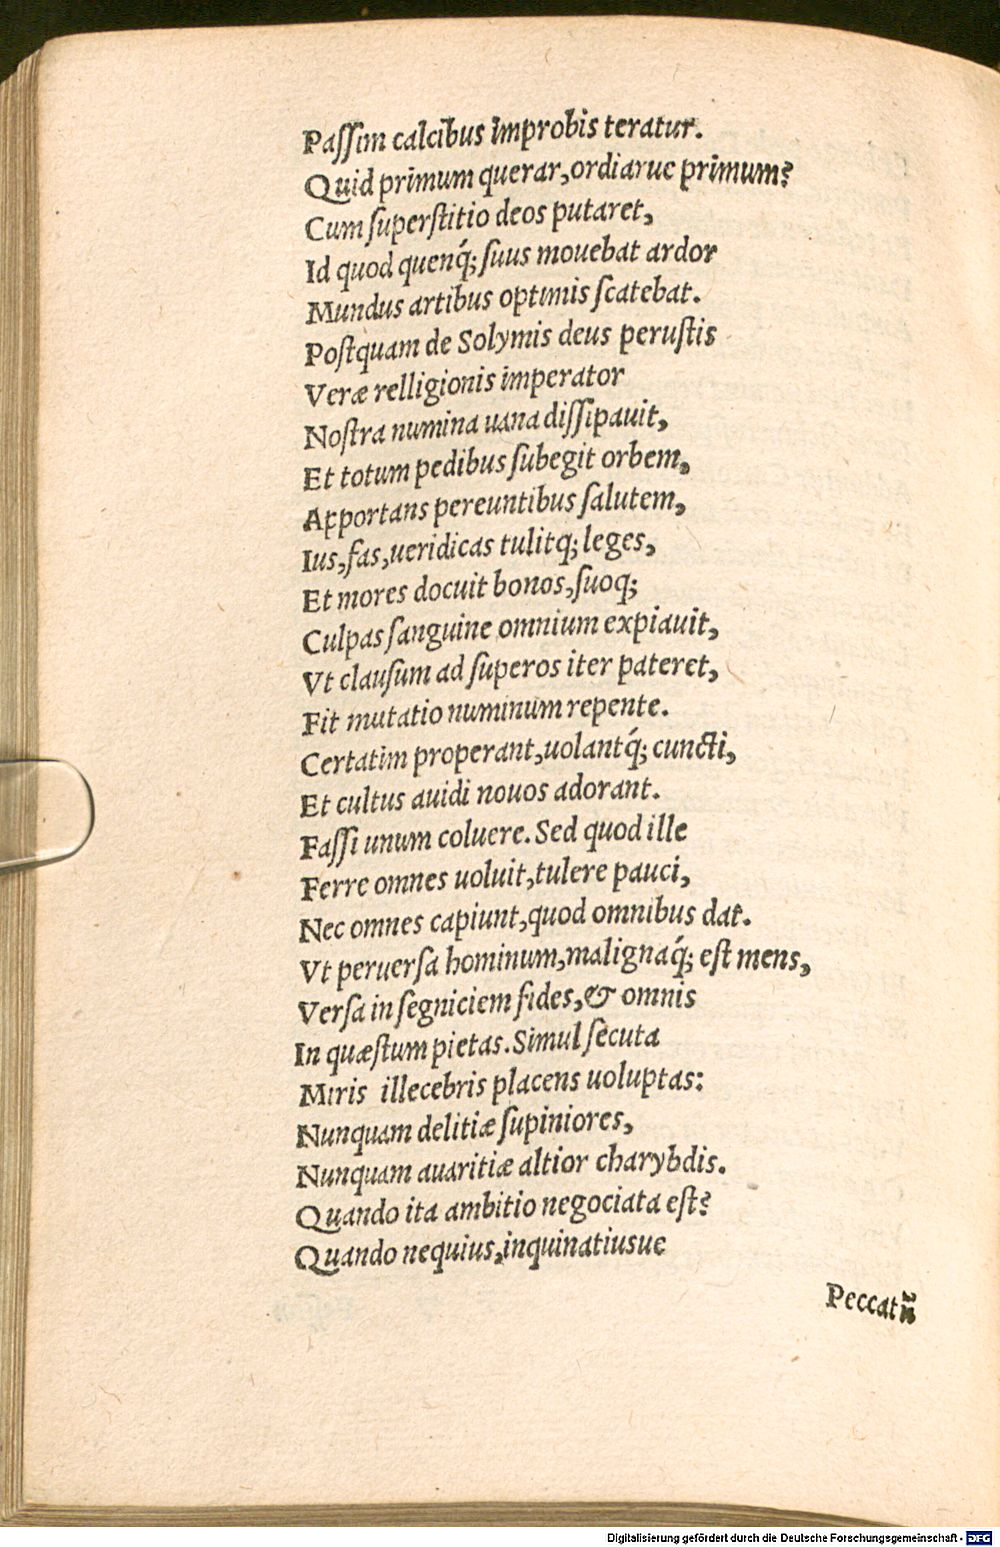 Paſſim calcibus improbis teratur.
Quid primum querar,ordiarue primum?
Cum ſuperſtitio deos putaret,
Id quod quenq́; ſuus mouebat ardor
Mundus artibus optimis ſcatebat.
Poſtquam de Solymis deus peruſtis
Veræ relligionis imperator
Noſtra numina uana diſſipauit,
Et totum pedibus ſubegit orbem,
Apportans pereuntibus ſalutem,
Ius,fas,ueridicas tulitq; leges,
Et mores docuit bonos,ſuoq;
Culpas ſanguine omnium expiauit,
Vt clauſum ad ſuperos iter pateret,
Fit mutatio numinum repente.
Certatim properant,uolantq́; cuncti,
Et cultus auidi nouos adorant.
Faſſi unum coluere. Sed quod ille
Ferre omnes uoluit,tulere pauci,
Nec omnes capiunt,quod omnibus dat.
Vt peruerſa hominum,malignaq́; eſt mens,
Verſa in ſegniciem fides,& omnis
In quæſtum pietas. Simul ſecuta
Miris illecebris placens uoluptas:
Nunquam delitiæ ſupiniores,
Nunquam auaritiæ altior charybdis.
Quando ita ambitio negociata eſt?
Quando nequius,inquinatiusue
Digitalisierung gefördert durch die Deutsche Forschungsgemeinschaft - DFG